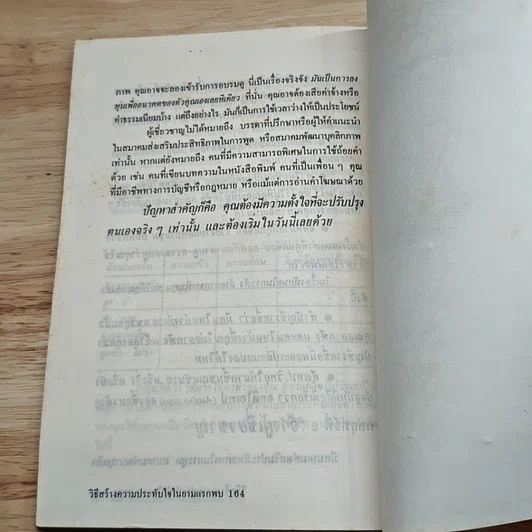 ภาพ คุณอาจจะลองเข้ารับการอบรมดู นี่เป็นเรื่องจริงจัง มันเป็นการลง
ทุนเพื่ออนาคตของตัวคุณเองเลยทีเดียว ที่นั่น คุณอาจต้องเสียค่าจ้างหรือ
ค่าธรรมเนียมบ้าง แต่ถึงอย่างไร มันก็เป็นการใช้เวลาว่างให้เป็นประโยชน์
ผู้เชี่ยวชาญไม่ได้หมายถึง บรรดาที่ปรึกษาหรือผู้ให้คำแนะนำ
ในสมาคมส่งเสริมประสิทธิภาพในการพูด หรือสมาคมพัฒนาบุคลิกภาพ
เท่านั้น หากแต่ยังหมายถึง คนที่มีความสามารถพิเศษในการใช้ถ้อยคำ
ด้วย เช่น คนที่เขียนบทความในหนังสือพิมพ์ คนที่เป็นเพื่อน ๆ คุณ
ที่มีอาชีพทางการบัญชีหรือกฎหมาย หรือแม้แต่การอ่านคำโฆษณาด้วย
ปัญหาสำคัญก็คือ คุณต้องมีความตั้งใจที่จะปรับปรุง
ตนเองจริง ๆ เท่านั้น และต้องเริ่มในวันนี้เลยด้วย
วิธีสร้างความประทับใจในยามแรกพบ 164